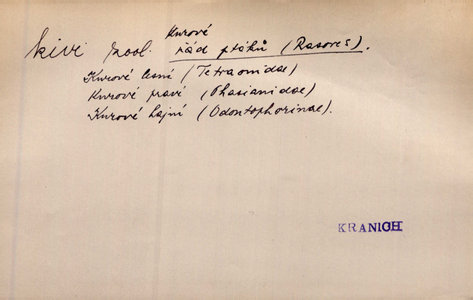 Kurové
kivi zool. řád ptáků (Rasores).
Kurové lesní (Tetraonidae)
Kurové praví (Phasianidae)
Kurové hajní (Odontophorinae).
KRANICH